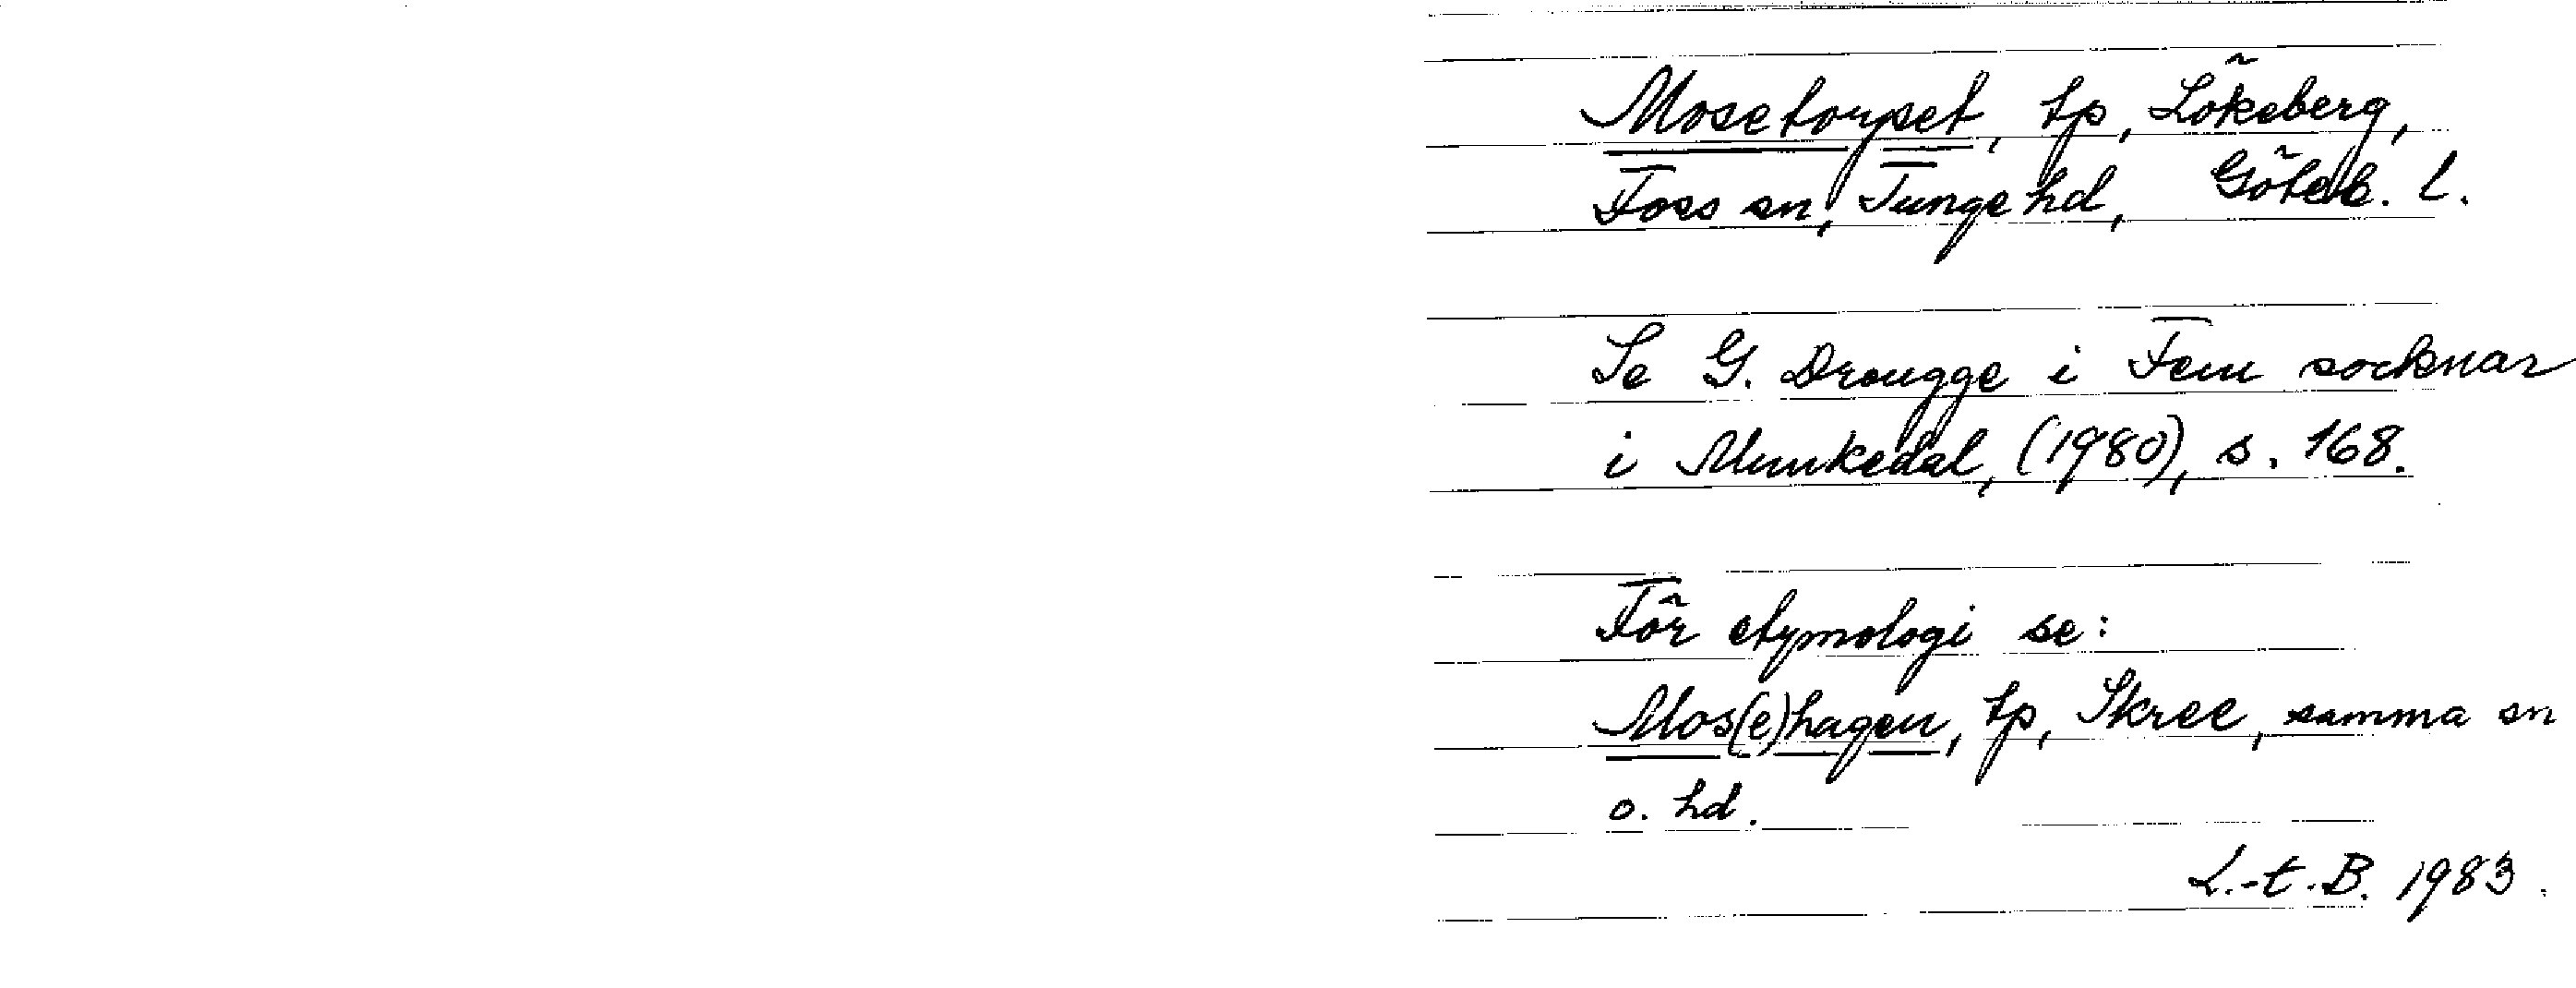 Mosetorpet, tp, Lökeberg,
Foss sn, Tunge hd, Göteb. l.
Se G. Drougge i Fem socknar
i Munkedal, (1980), s. 168.
För etymologi se:
Mos(e)hagen, tp, Skree, samma sn
o. hd.
L.-t. B. 1983.